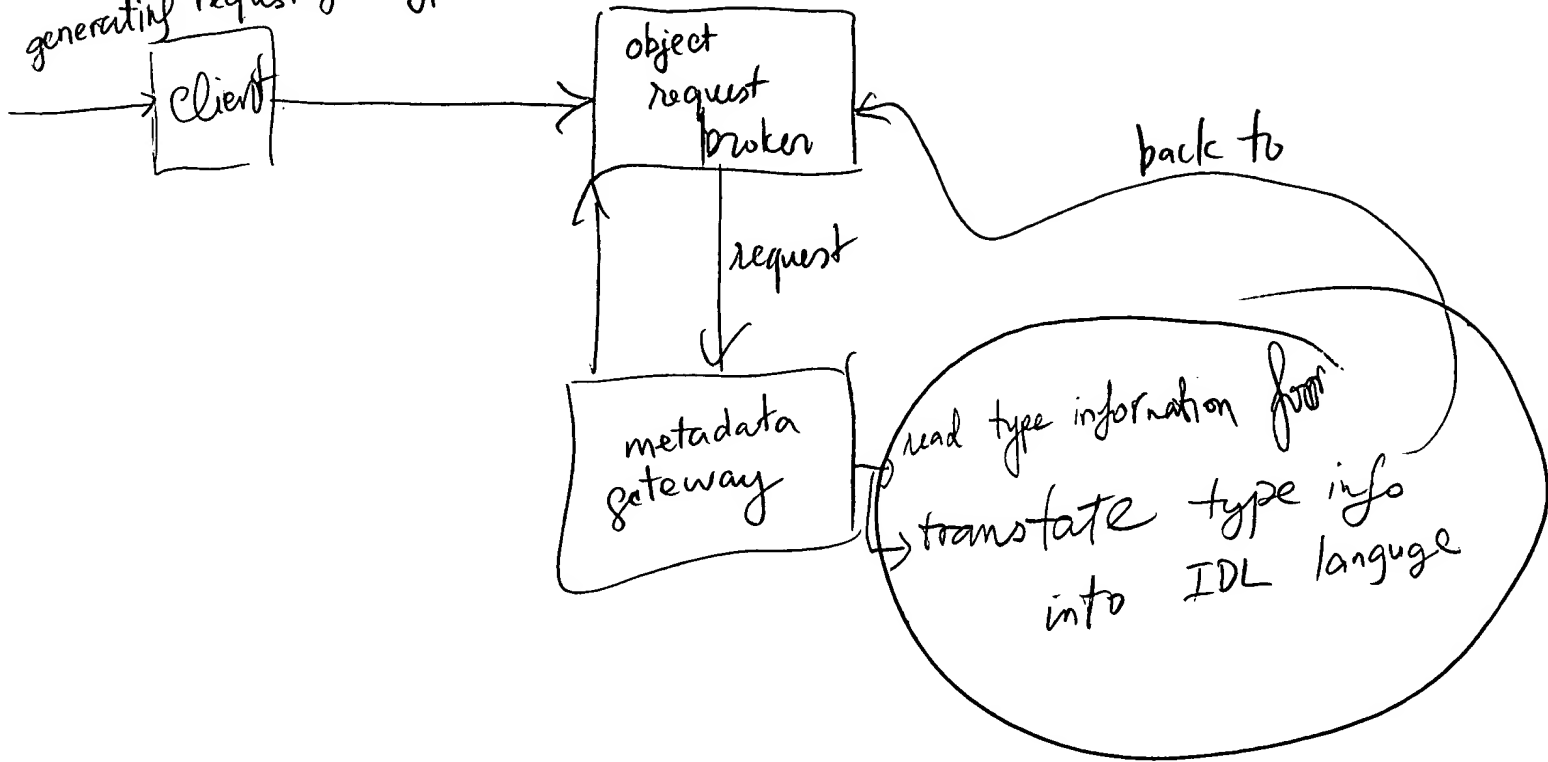 generating request
Client
object
request
broker
back to
request
metadata
gateway
read type information from
translate type info
into IDL languge